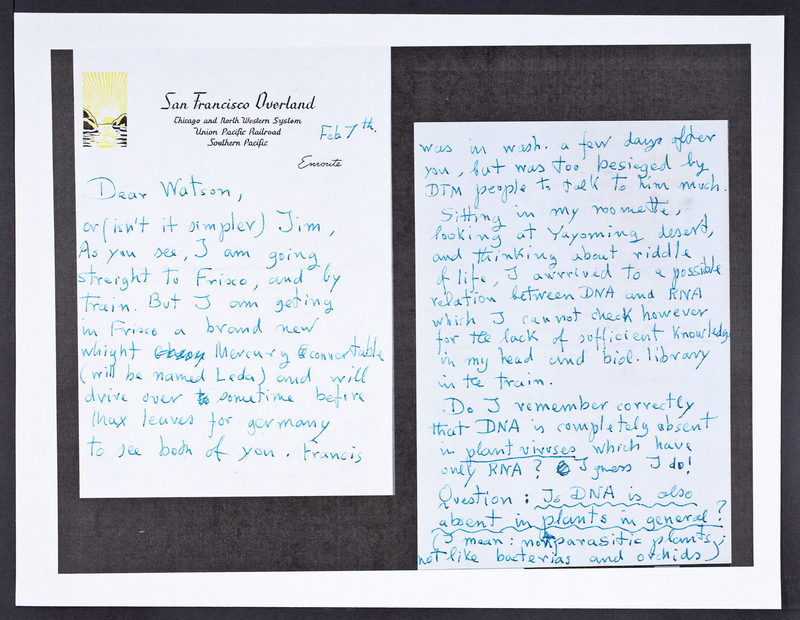 San Francisco Overland
Chicago and North Western System
Union Pacific Railroad
Southern Pacific
Feb 7th.
Enroute
Dear Watson,
or (isn't it simpler) Jim,
As you see, I am going
streight to Frisco, and by
train. But I am geting
in Frisco a brand new
whight Mercury convertable
(will be named Leda) and will
drive over to sometime before
Max leaves for germany
to see both of you. Francis
was in wash. a few days after
you, but was too besieged by
DTM people to talk to him much.
Sitting in my roomette,
looking at Yayoming desert,
and thinking about riddle
of life, I awrrived to a possible
relation between DNA and RNA
which I cannot check however
for the lack of sufficient knowledge
in my head and biol. library
in the train.
Do I remember correctly
that DNA is completely absent
in plant viruses which have
only RNA? I guess I do!
Question: Is DNA is also
absent in plants in general?
(I mean: not parasitic plants;
not like bacterias and orchids)